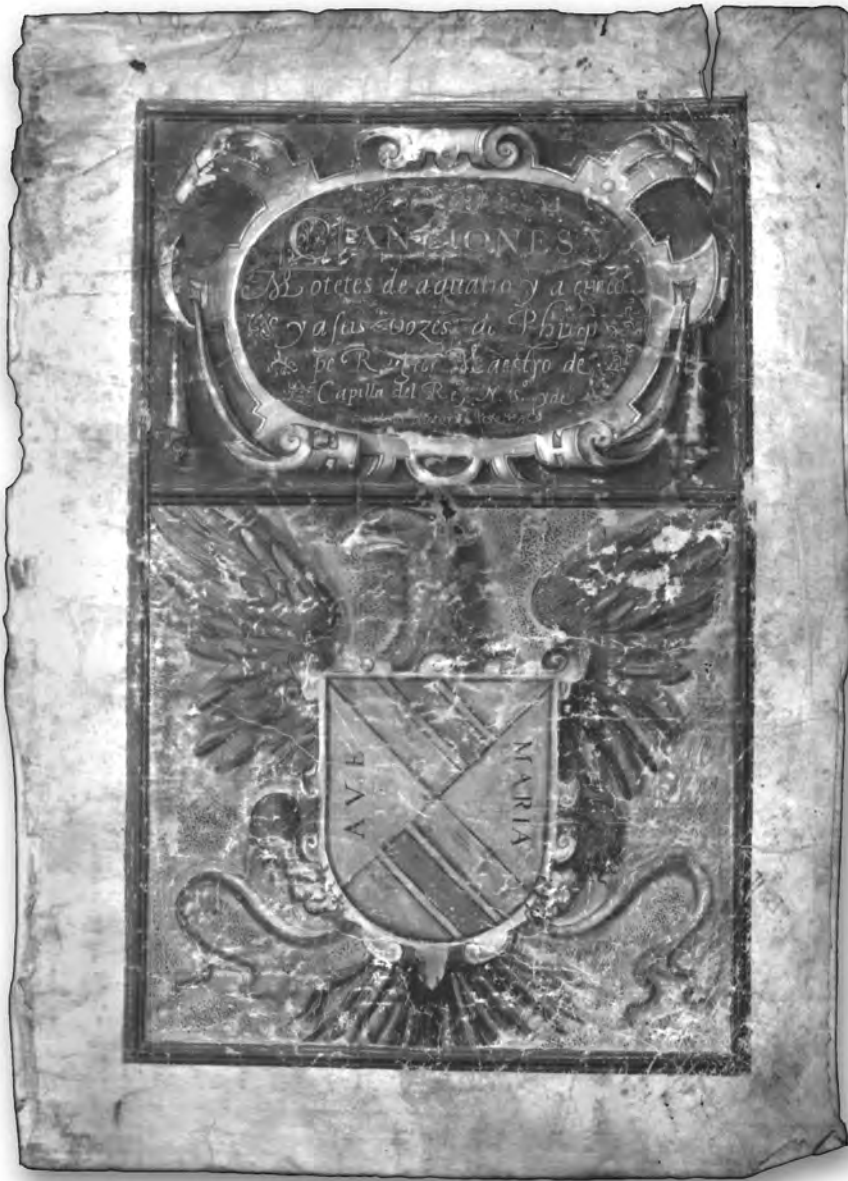 CANCIONES Y
Motetes de aquatro y a cinco
y a seis vozes de Phelip
pe Rogier Maestro de
Capilla del Rey N. S.or y de
AVE
MARIA